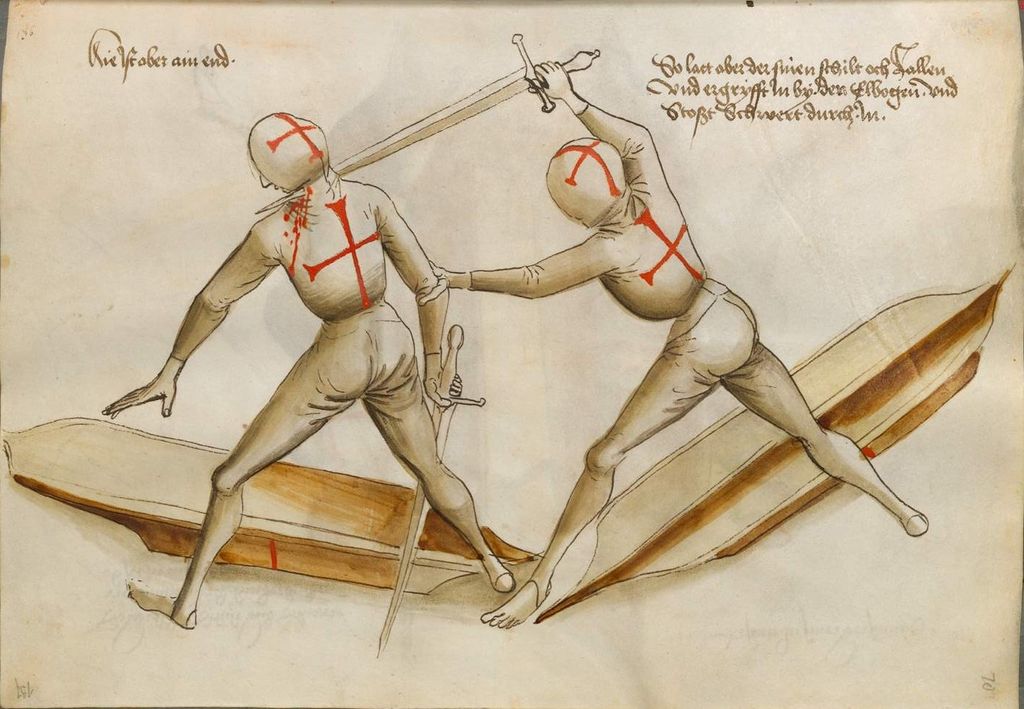 Hie ist aber ain end.
So latt aber der sinen schilt och fallen
Vnd ergrifft in by der Elbogen vnd
Stoszt Schwert durch in.
70